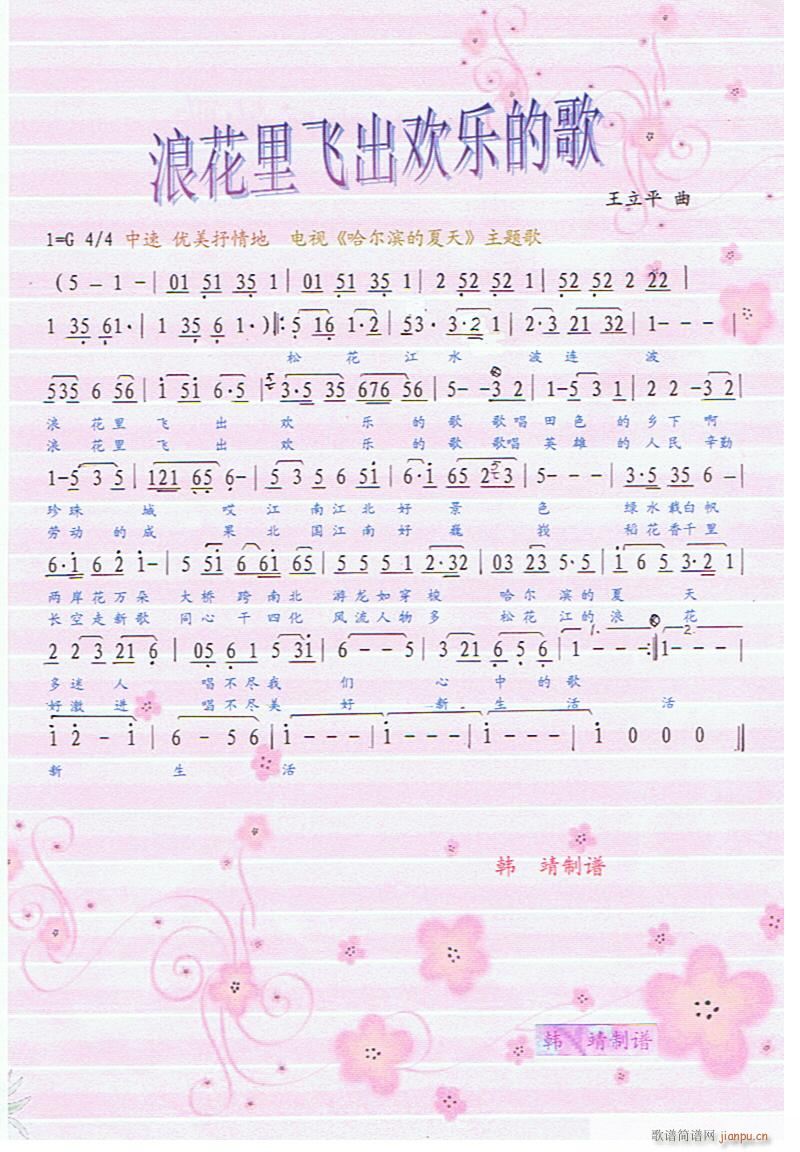 浪花里飞出欢乐的歌
王立平 曲
1=G 4/4 中速 优美抒情地 电视《哈尔滨的夏天》主题歌
(5 - 1 - | 01 51 35 1 | 01 51 35 1 | 2 52 52 1 | 52 52 2 22 |
1 35 61· | 1 35 6 1· )‖: 5 16 1·2 | 53· 3·2 1 | 2·3 21 32 | 1 - - - |
松 花 江 水 波 连 波
535 6 56 | 1 51 6·5 | 3·5 35 676 56 | 5 - -3 2 | 1-5 3 1 | 2 2 -3 2 |
浪 花 里 飞 出 欢 乐 的 歌 歌 唱 田 色 的 乡 下 啊
浪 花 里 飞 出 欢 乐 的 歌 歌 唱 英 雄 的 人 民 辛勤
1-5 3 5 | 121 65 6- | 5 3 5 6 51 | 6·1 65 253 | 5 - - - | 3·5 35 6 - |
珍珠 城 哎 江 南江 北 好 景 色 绿 水 载白 帆
劳动 的 成 果 北 国江 南 好 巍 峩 稻 花 香千 里
6·1 62 1- | 5 51 6 61 65 | 5 5 5 1 2·32 | 03 23 5·5 | 1 6 5 3·2 1 |
两岸 花 万 朵 大 桥 跨 南北 游 龙 如 穿 梭 哈尔 滨 的 夏 天
长空 走 新 歌 同 心 干 四化 风 流 人 物 多 松花 江的 浪 花
2 2 3 21 6 | 05 6 1 5 31 | 6 - - 5 | 3 21 6 5 6 | 1. 1 - - - :‖ 2. 1 - - - |
多 迷 人 唱 不 尽 我 们 心 中 的 歌
好 激 进 唱 不 尽 美 好 新 生 活 活
1 2 - 1 | 6 - 5 6 | 1 - - - | 1 - - - | 1 - - - | 1 0 0 0 ‖
新 生 活
韩 靖制谱
韩 靖制谱
歌谱简谱网 jianpu.cn